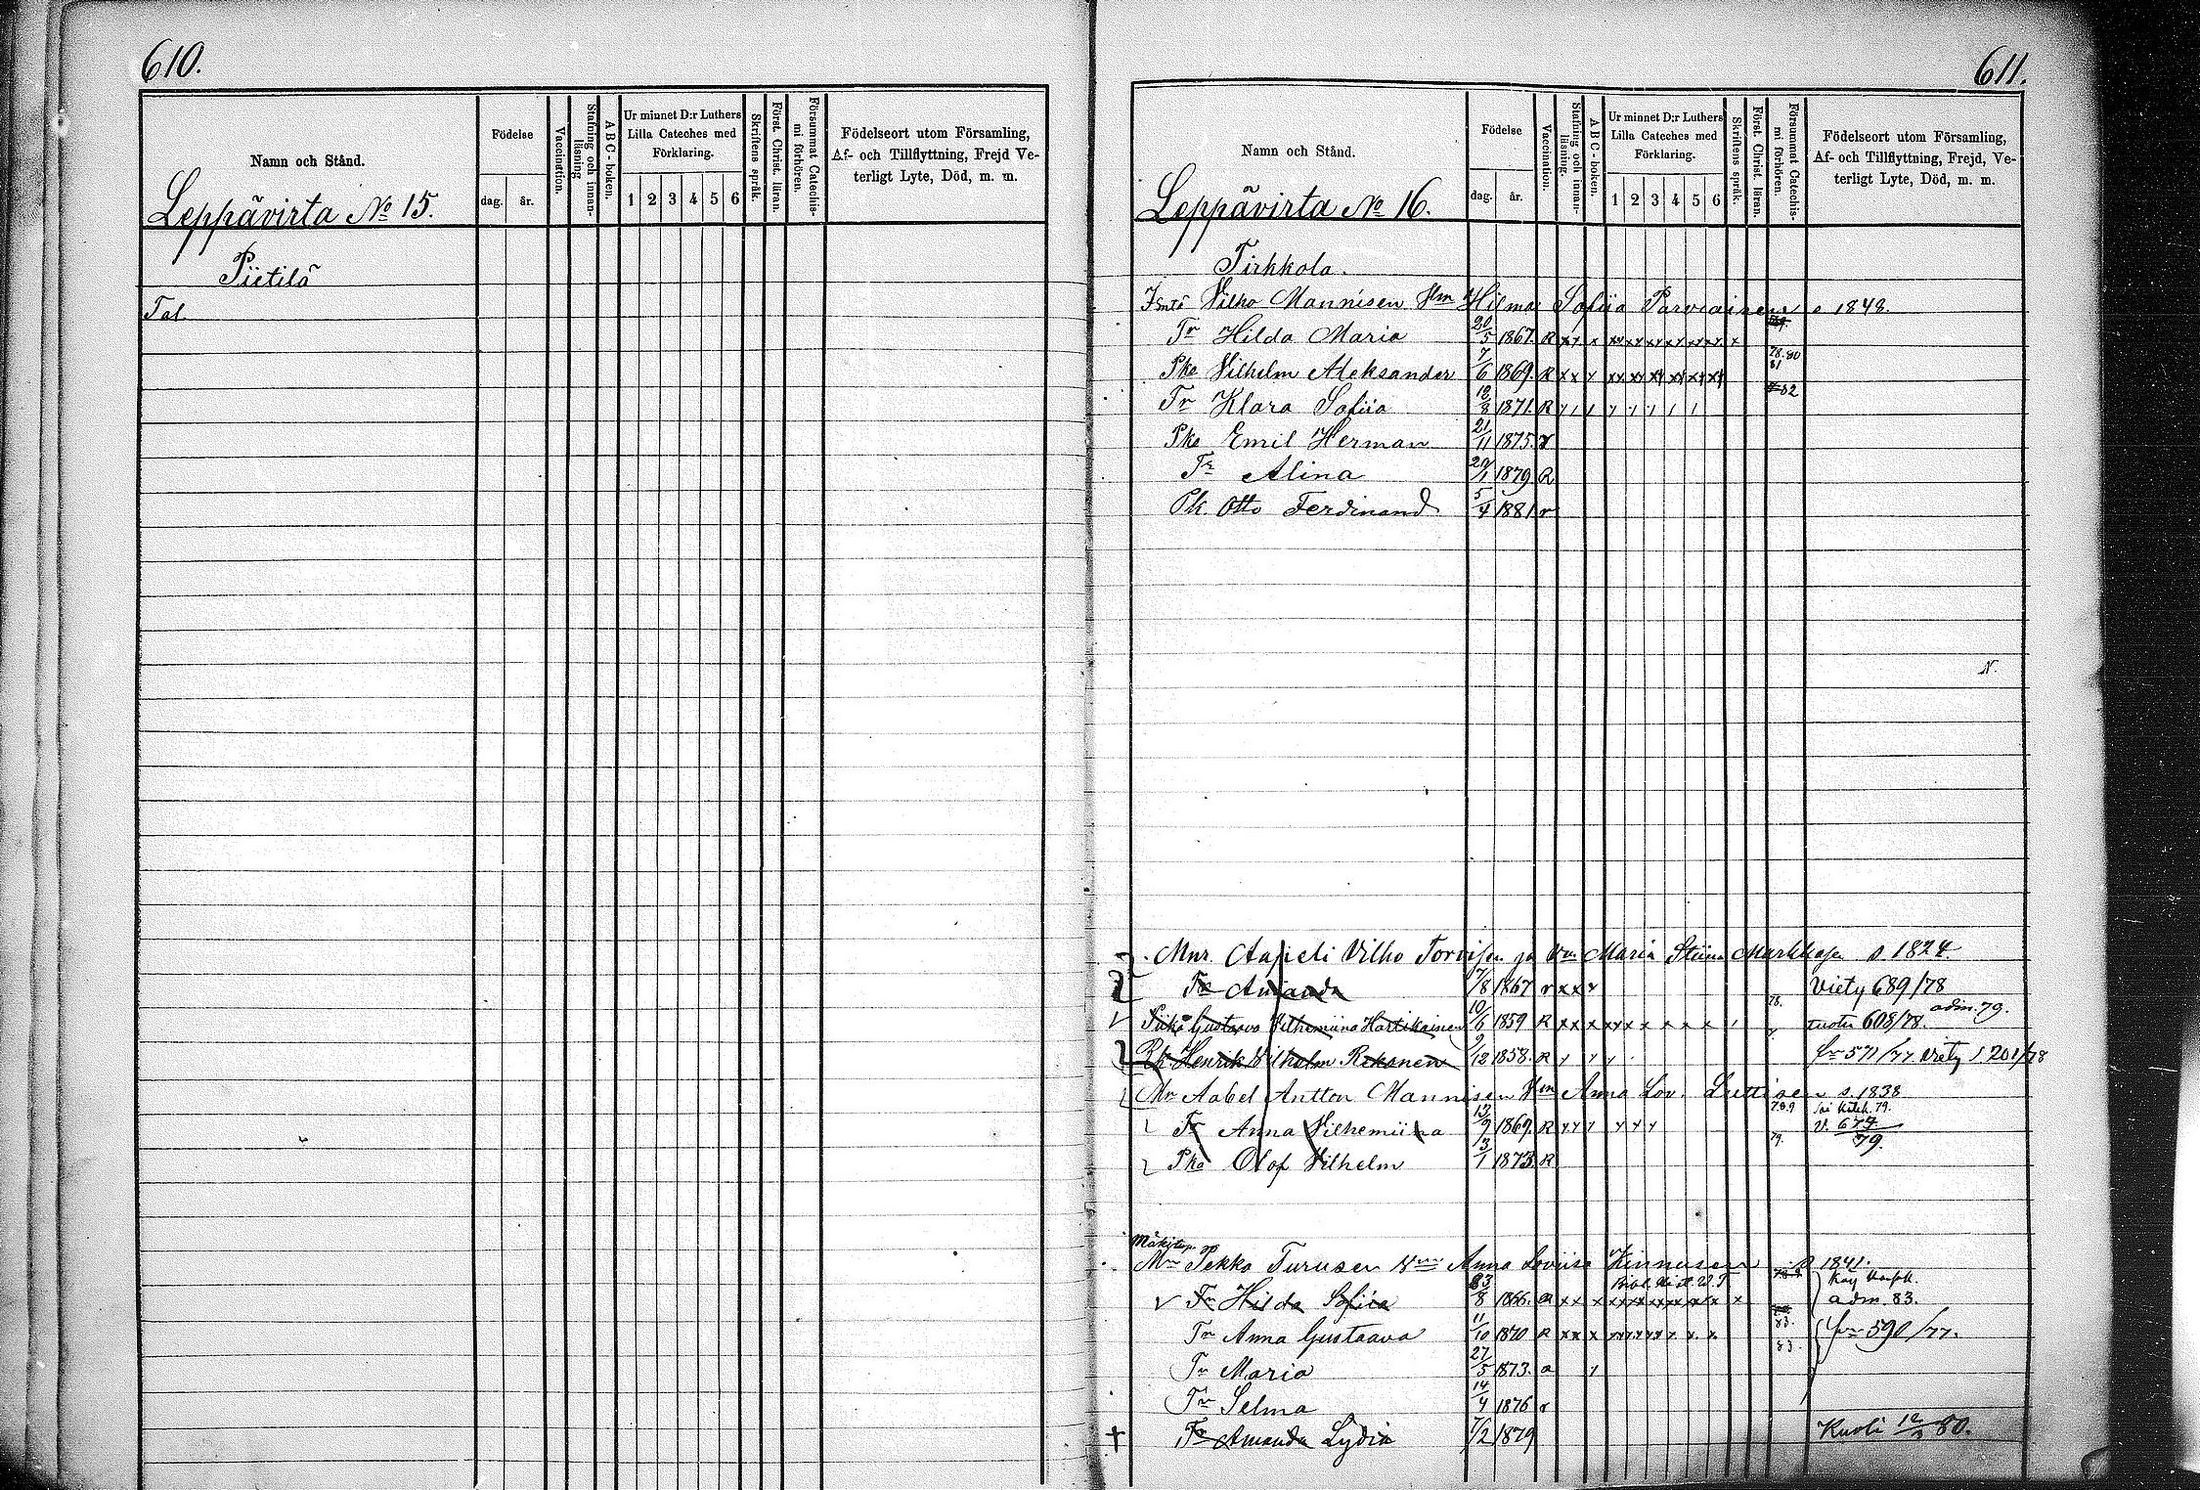 610.
Namn och Stånd.
Födelse
dag.
år.
Vaccination.
Stafning och innan-
läsning
ABC-boken.
Ur minnet D:r Luthers
Lilla Cateches med
Förklaring.
1 2 3 4 5 6
Skriftens språk.
Först. Christ. läran.
Försummat Catechis-
mi förhören.
Födelseort utom Församling,
Af- och Tillflyttning, Frejd Ve-
terligt Lyte, Död, m. m.
Leppävirta No 15.
Pietilä
Tal.
611.
Namn och Stånd.
Födelse
dag.
år.
Vaccination.
Stafning och innan-
läsning.
ABC-boken.
Ur minnet D:r Luthers
Lilla Cateches med
Förklaring.
1 2 3 4 5 6
Skriftens språk.
Först. Christ. läran.
Försummat Catechis-
mi förhören.
Födelseort utom Församling,
Af- och Tillflyttning, Frejd, Ve-
terligt Lyte, Död, m. m.
Leppävirta No 16.
Tirkkola.
Vilho Mannisen Vm Hilma Sofiia Parviainen s 1848.
Tr Hilda Maria 20/5 1867. R
Pka Vilhelm Aleksander 7/6 1869. R 78.80 81
Tr Klara Sofiia 18/8 1871. R 82
Pka Emil Herman 21/11 1875. r
Tr Alina 20/1 1879 R
Pk. Otto Ferdinand 5/4 1881 r
N.
Mnr. Aapeli Vilho Torvisen ja Vm Maria Stiina Markkasen s. 1824.
Tr Amanda 7/8 1867 r x x Viety 689/78
Gustaava Vilhemiina Hartikainen 10/6 1859 R 78. tuotu 608/78. adm. 79.
Pk Henrik Vilhelm Rekonen 9/12 1858. R fr 571/77 Viety s. 201/78
Mn Aabel Antton Mannisen Vm Anna Lov. Luttisen s. 1838
Tr Anna Vilhemiina 13/9 1869. R 78.9 79. v. 674/79.
Pka Olof Vilhelm 3/1 1873. R 79.
Mäkitup.
Mn Pekka Turusen Vm Anna Loviisa Kinnusen s 1841.
Bibl. Hist. V. T
Tr Hilda Sofiia 23/8 1866. adm. 83.
Tr Anna Gustaava 11/10 1870 R 83. fr 590/77.
Tr Maria 27/5 1873. a 83.
Tr Selma 14/4 1876 r
Tr Amanda Lydia 7/2 1879 Kuoli 80.